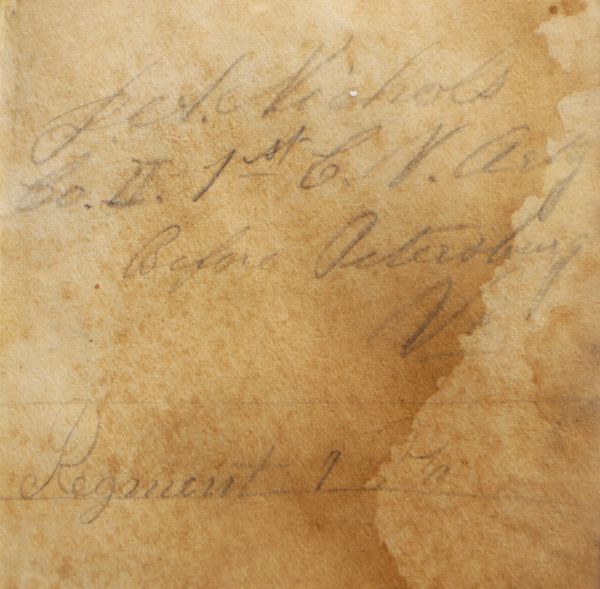 Nichols
Co. I. 1st C. V. Arty
Before Petersburg
V
Regment 1